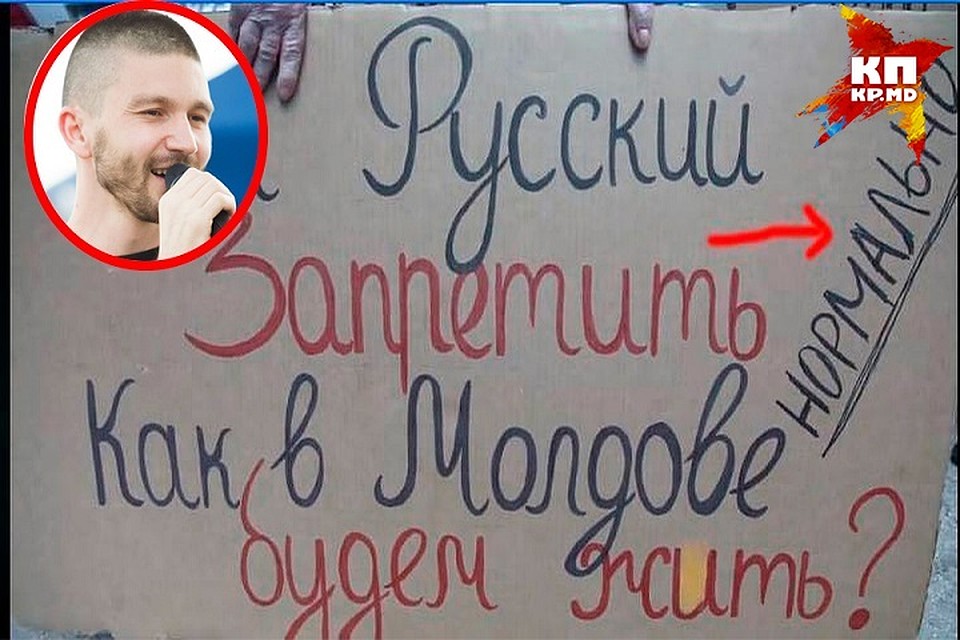 Русский
Запретить
Как в Молдове
будем жить?
НОРМАЛЬНО
КП
KP.MD